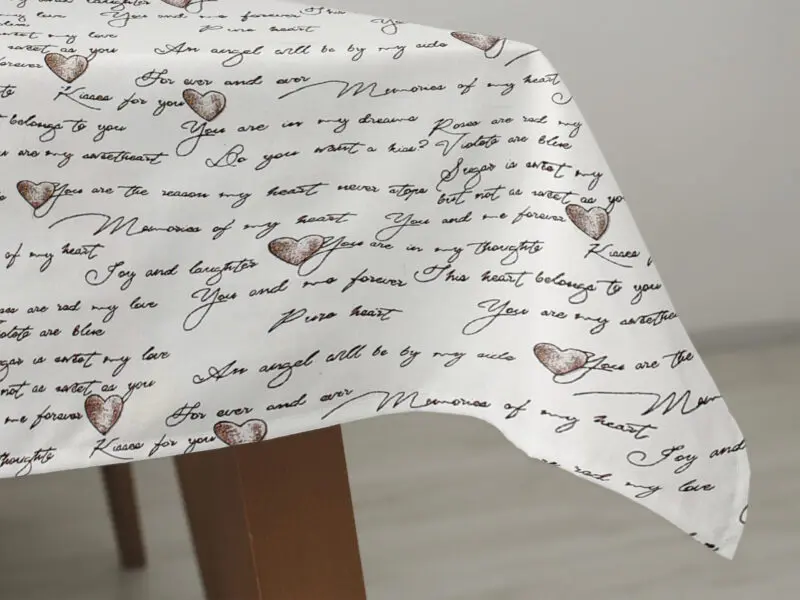 my love You and me forever This
Pure heart You
sweet my love
sweet as you An angel will be by my side
forever For ever and ever Memories of my heart
Kisses for you
belongs to you You are in my dreams Roses are red my
are my sweetheart Do you want a kiss? Violets are blue
Sugar is sweet my
You are the reason my heart never stops but not as sweet as yo
Memories of my heart You and me forever
of my heart You are in my thoughts Kisses
Joy and laughter
are red my love You and me forever This heart belongs to you
Violets are blue Pure heart You are my
is sweet my love
not as sweet as you An angel will be by my side You are the
me forever For ever and ever Memories of my heart Mem
thoughts Kisses for you Joy and
red my love